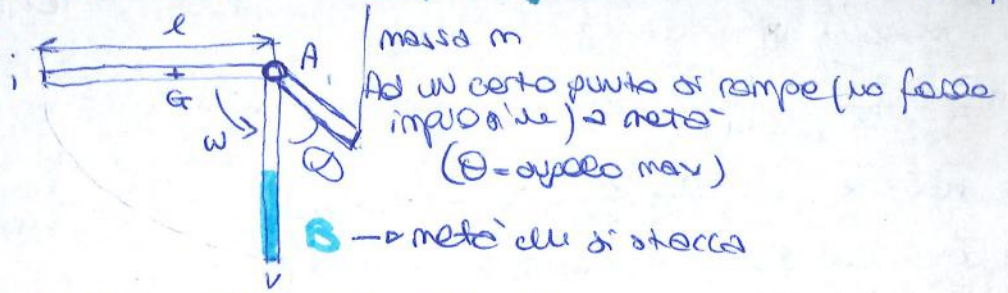 l
massa m
i
A
G
Ad un certo punto si rompe (no forze
impulsive) a metà
ω
θ
(θ = angolo max)
B → metà che si stacca
v